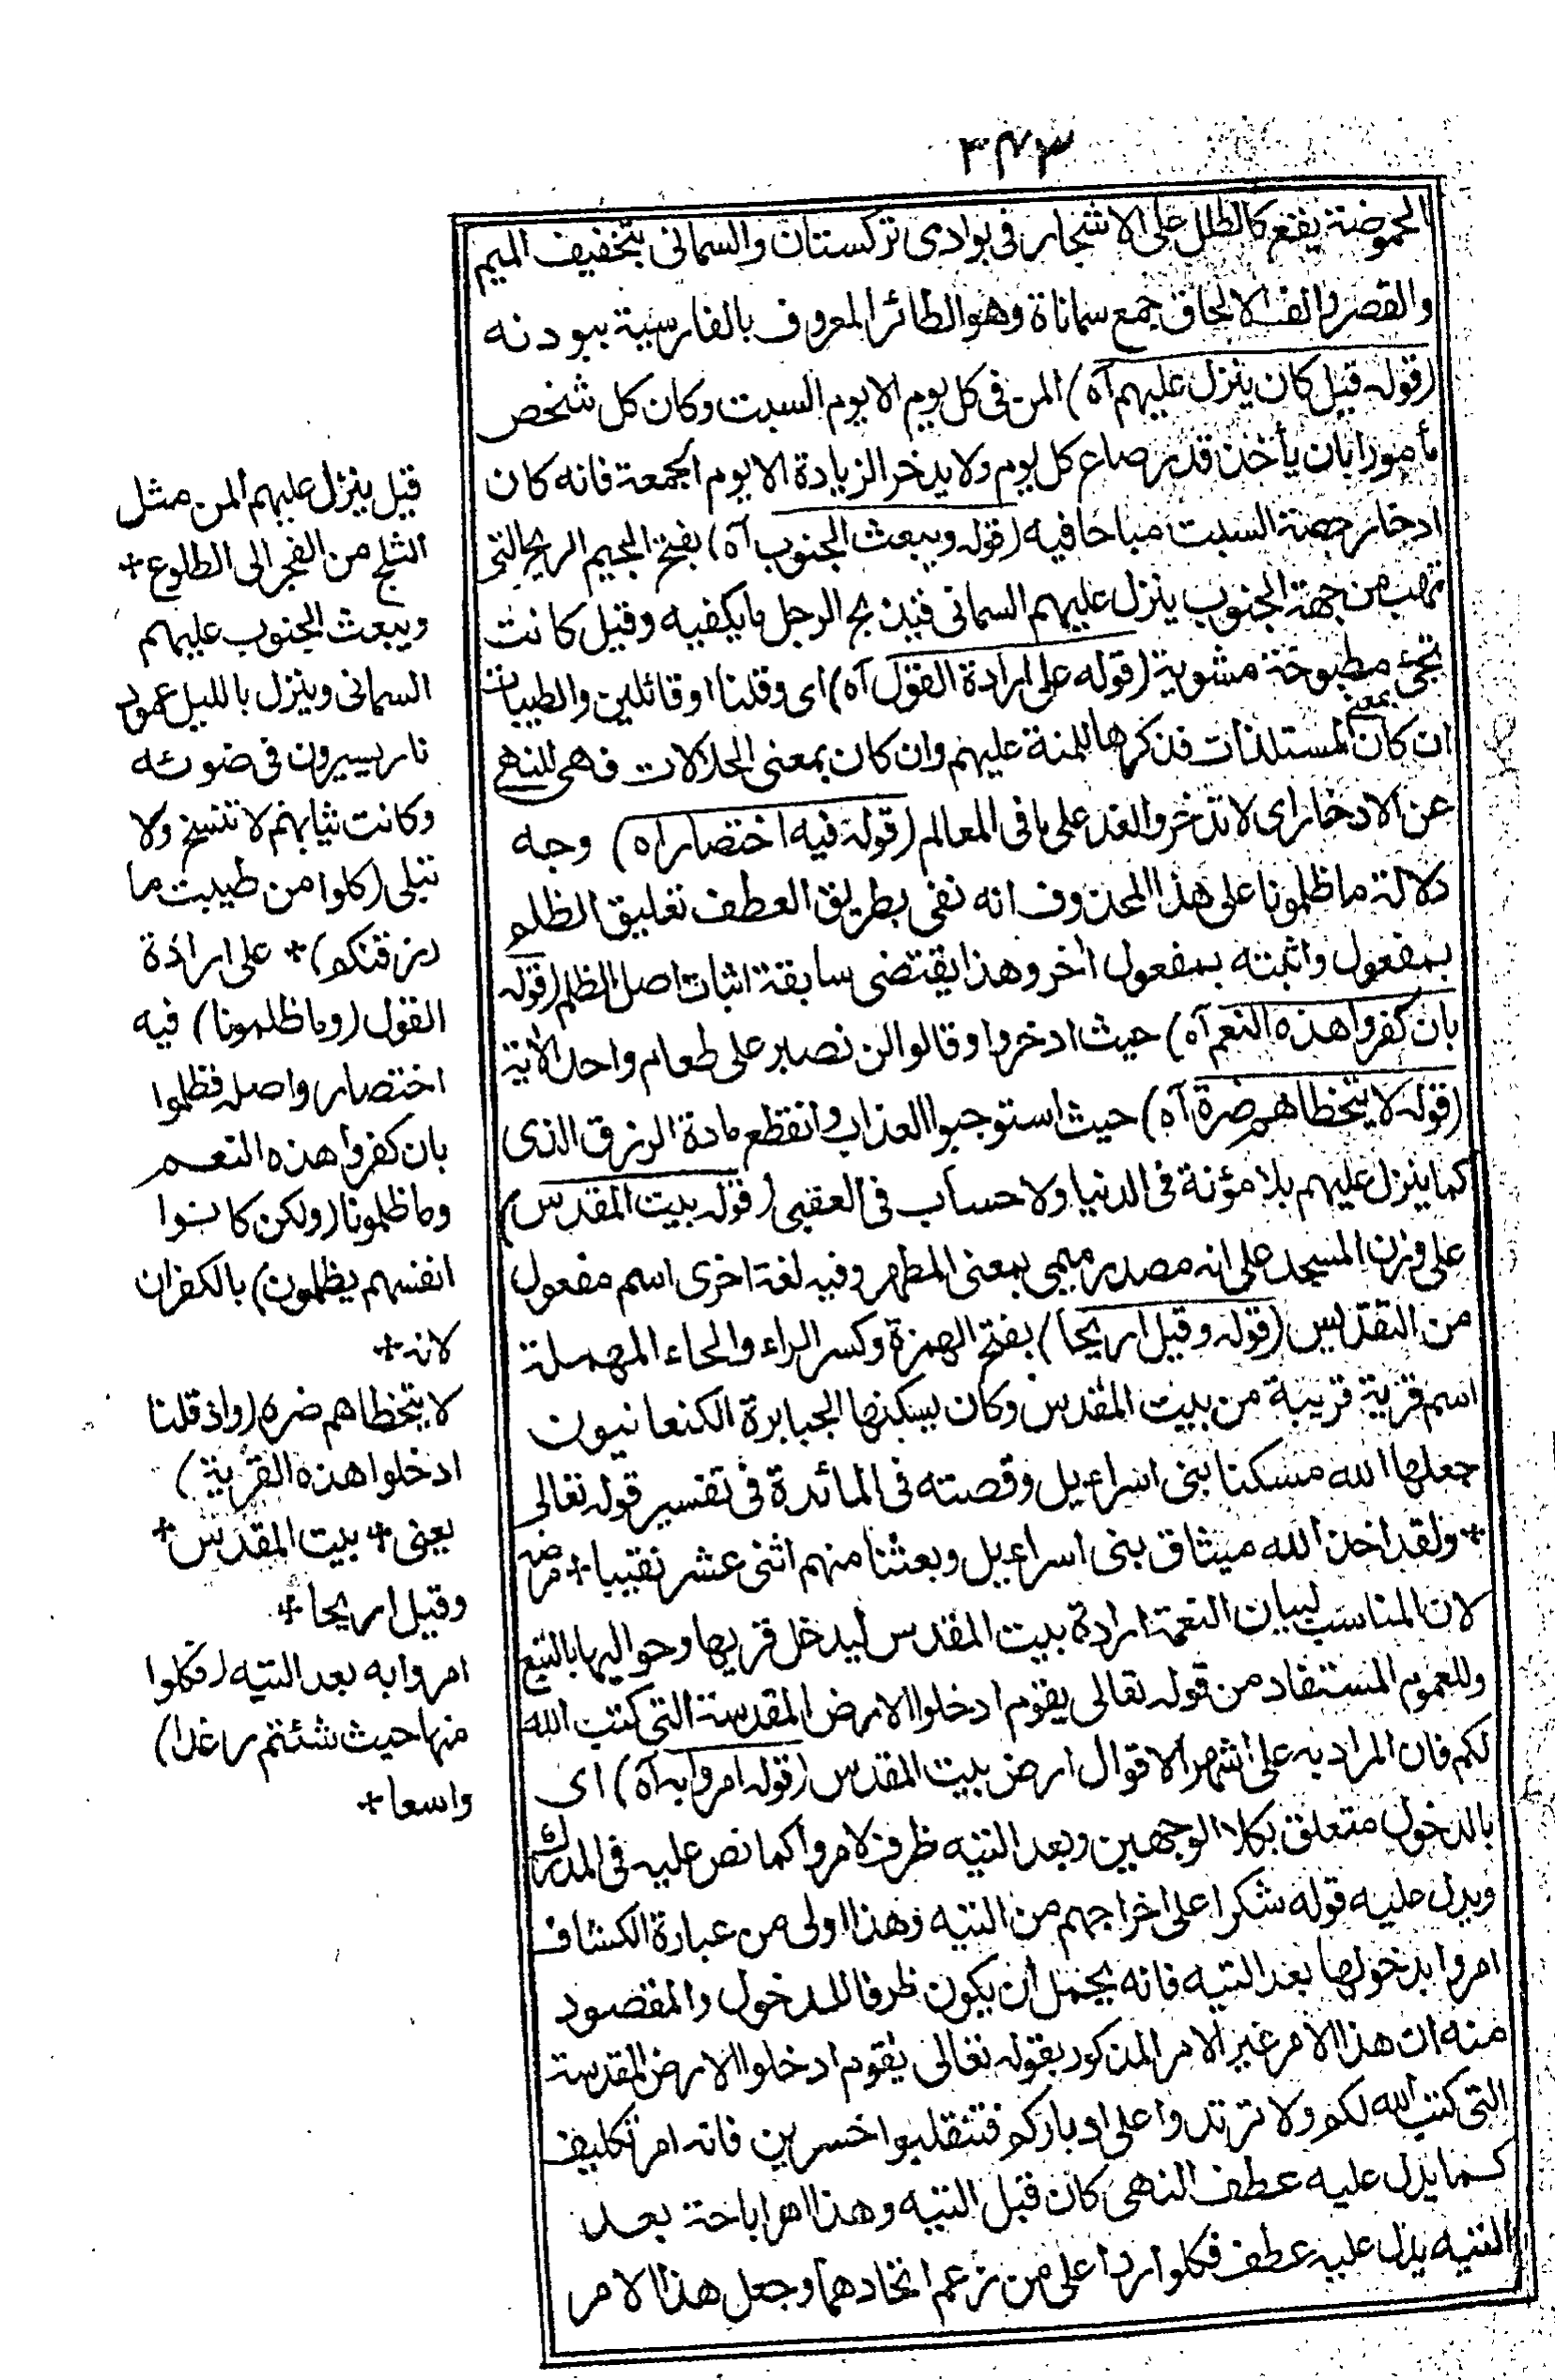 ٣٤٣
الحموضة يقع كالطل على الاشجار فى بوادى تركستان والسمانى بتخفيف الميم
والقصر والف الالحاق جمع سماناة وهو الطائر المعروف بالفارسية ببودنه
(قوله قيل كان ينزل عليهم آه) المن فى كل يوم الا يوم السبت وكان كل شخص
مأمورا بان يأخذ قدر صاع كل يوم ولا يدخر الزيادة الا يوم الجمعة فانه كان
ادخار حصة السبت مباحا فيه (قوله ويبعث الجنوب آه) بفتح الجيم الريح التى
تهب من جهة الجنوب ينزل عليهم السمانى فيذبح الرجل ما يكفيه وقيل كانت
تجئ مطبوخة مشوية (قوله على ارادة القول آه) اى وقلنا او قائلين والطيبات
ان كان بمعنى المستلذات فذكرها للمنة عليهم وان كان بمعنى الحلالات فهى للنهى
عن الادخار اى لا تدخروا لغد على ما فى المعالم (قوله فيه اختصار اه) وجه
دلالة ما ظلمونا على هذا المحذوف انه نفى بطريق العطف تعليق الظلم
بمفعول واثبته بمفعول اخر وهذا يقتضى سابقة اثبات اصل الظلم (قوله
بان كفروا هذه النعم آه) حيث ادخروا وقالوا لن نصبر على طعام واحد الآية
(قوله لا يتخطاهم ضره آه) حيث استوجبوا العذاب وانقطع مادة الرزق الذى
كما ينزل عليهم بلا مؤنة فى الدنيا ولا حساب فى العقبى (قوله بيت المقدس)
على وزن المسجد على انه مصدر ميمى بمعنى المطهر وفيه لغة اخرى اسم مفعول
من التقديس (قوله وقيل اريحا) بفتح الهمزة وكسر الراء والحاء المهملة
اسم قرية قريبة من بيت المقدس وكان يسكنها الجبابرة الكنعانيون
جعلها الله مسكنا بنى اسراءيل وقصته فى المائدة فى تفسير قوله تعالى
+ ولقد اخذ الله ميثاق بنى اسراءيل وبعثنا منهم اثنى عشر نقيبا +
لان المناسب لبيان النعمة ارادة بيت المقدس ليدخل قريها وحواليها بالتبع
وللعموم المستفاد من قوله تعالى يقوم ادخلوا الارض المقدسة التى كتب الله
لكم فان المراد به على اشهر الاقوال ارض بيت المقدس (قوله امروا به آه) اى
بالدخول متعلق بكلا الوجهين وبعد التيه ظرف لامروا كما نص عليه فى المدارك
ويدل عليه قوله شكرا على اخراجهم من التيه وهذا اولى من عبارة الكشاف
امروا بدخولها بعد التيه فانه يحتمل ان يكون ظرفا للدخول والمقصود
منه ان هذا الامر غير الامر المذكور بقوله تعالى يقوم ادخلوا الارض المقدسة
التى كتب الله لكم ولا ترتدوا على ادباركم فتنقلبوا خسرين فانه امر تكليف
كما يدل عليه عطف النهى كان قبل التيه وهذا امر اباحة بعد
التيه يدل عليه عطف فكلوا ردا على من زعم اتحادهما وجعل هذا الامر
قيل ينزل عليهم المن مثل
الثلج من الفجر الى الطلوع +
ويبعث الجنوب عليهم
السمانى وينزل بالليل عمود
نار يسيرون فى ضوئه
وكانت ثيابهم لا تتسخ ولا
تبلى (كلوا من طيبت ما
رزقنكم) + على ارادة
القول (وما ظلمونا) فيه
اختصار واصله فظلموا
بان كفروا هذه النعم
وما ظلمونا (ولكن كانوا
انفسهم يظلمون) بالكفران
لانه +
لا يتخطاهم ضره (واذ قلنا
ادخلوا هذه القرية)
يعنى + بيت المقدس +
وقيل اريحا +
امروا به بعد التيه (فكلوا
منها حيث شئتم رغدا)
واسعا +